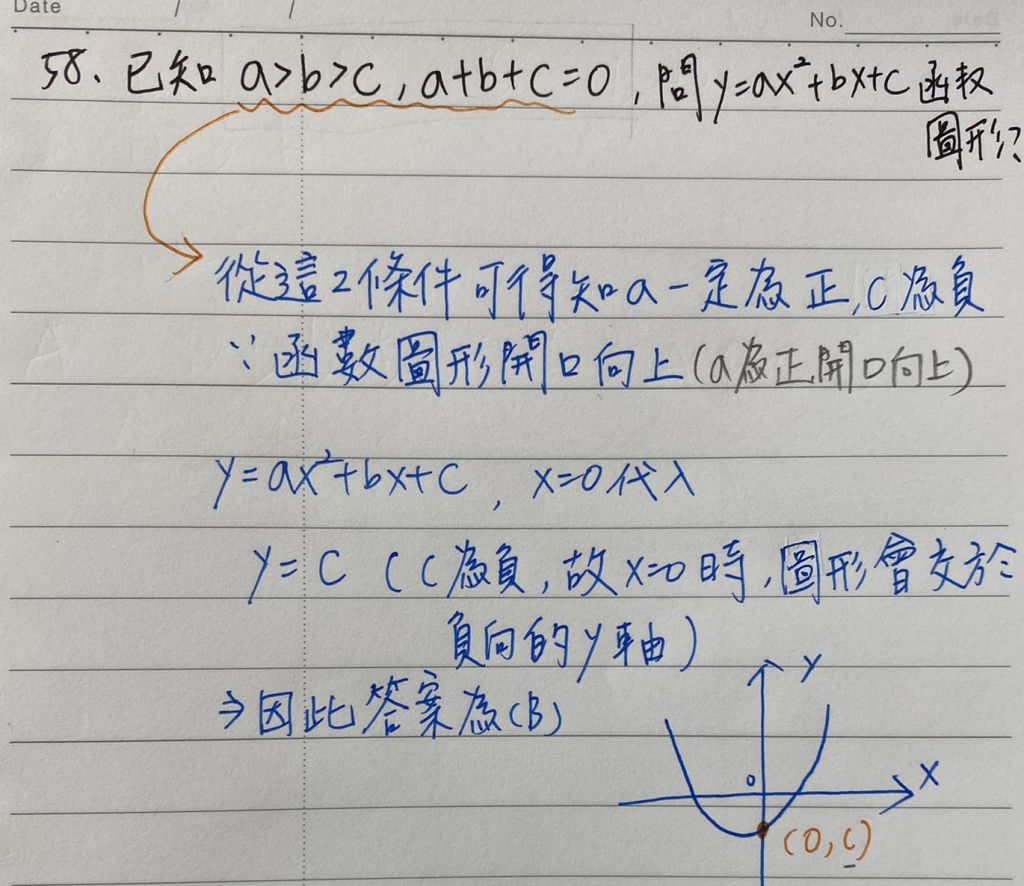 Date / /
No.
58. 已知 a>b>c, a+b+c=0, 問 y=ax²+bx+c 函数
圖形?
從這2條件可得知a一定為正, c為負
∵函數圖形開口向上(a為正開口向上)
y=ax²+bx+c, x=0代入
y=c (c為負, 故x=0時, 圖形會交於
負向的y軸)
⇒因此答案為(B)
y
0
x
(0, c)